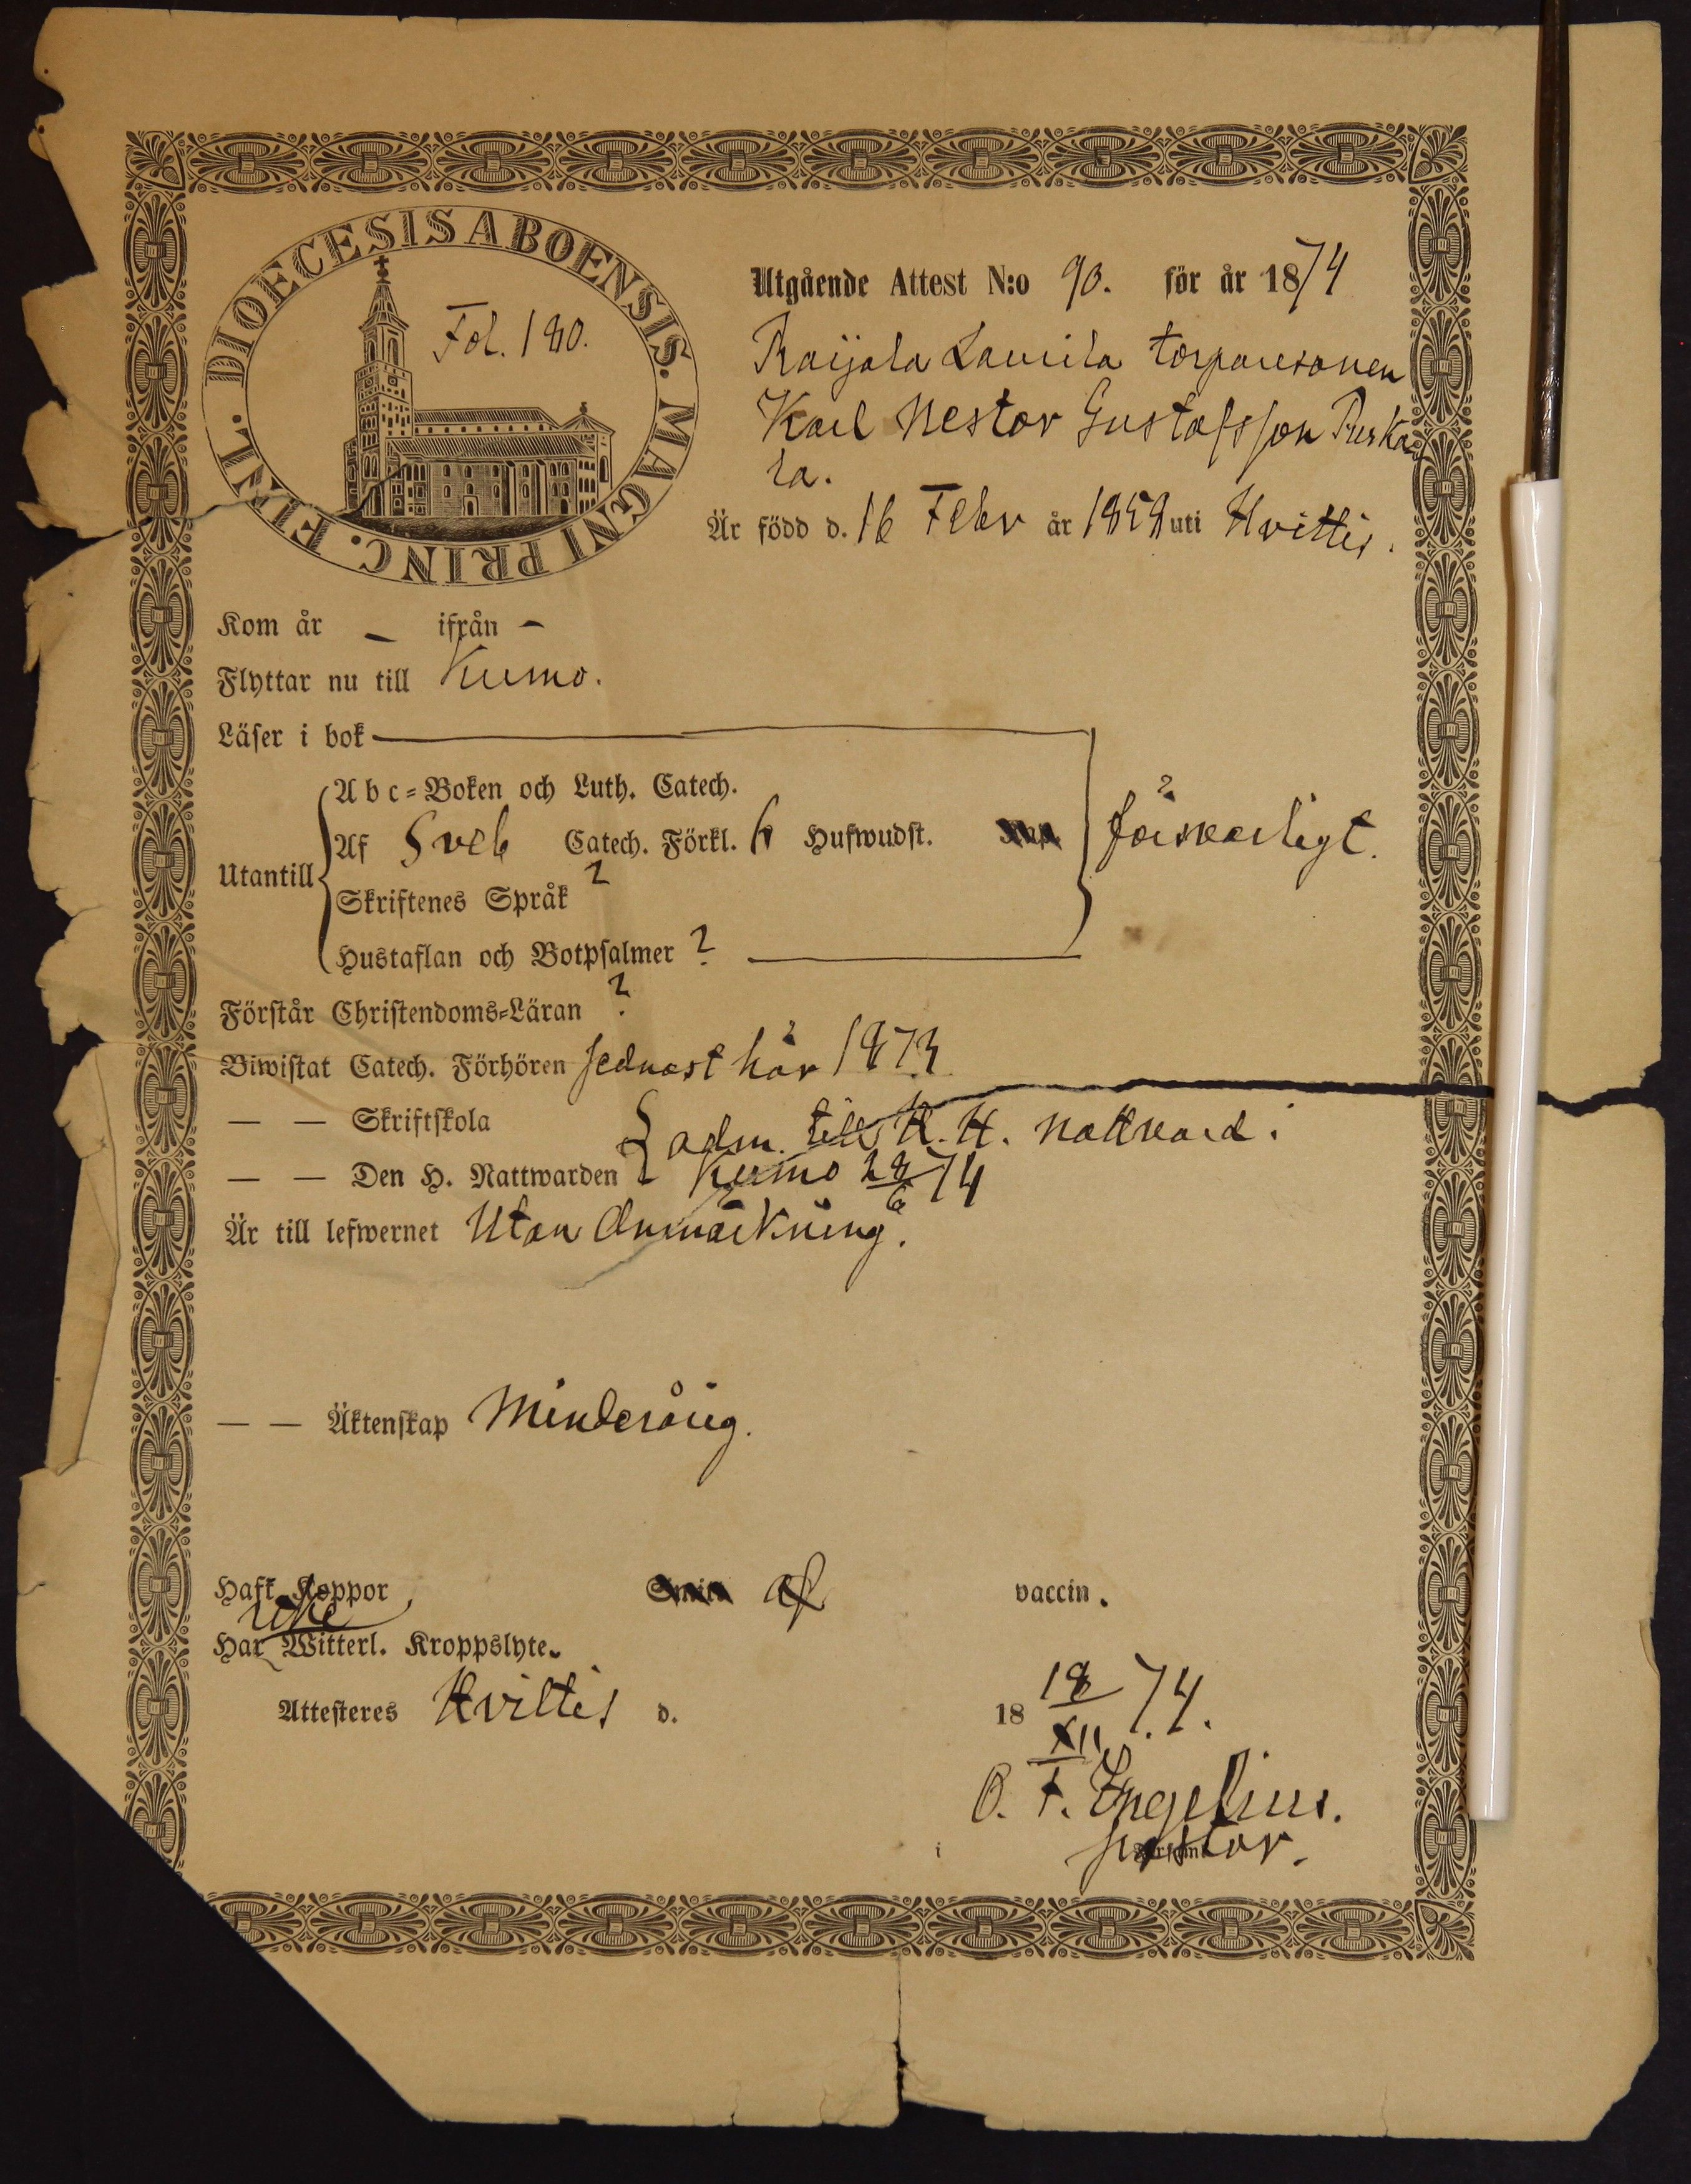 DIOECESIS ABOENSIS. MAGNI PRINC. FINL.
Fol. 180.
Utgående Attest N:o 90. för år 1874
Raijala Laurila torparesonen
Karl Nestor Gustafsson Puska
la.
Är född d. 16 Febr år 1858 uti Hvittis.
Kom år – ifrån –
Flyttar nu till Kumo.
Läser i bok
Abc-Boken och Luth. Catech.
Utantill
Af Sveb Catech. Förkl. 6 Hufwudst.
försvarligt.
Skriftenes Språk ?
Hustaflan och Botpsalmer ?
Förstår Christendoms-Läran ?
Biwistat Catech. Förhören sednast här 1873
— — Skriftskola
adm. till H. H. nattvard i
— — Den H. Nattwarden
Kumo 28/6 74
Är till lefwernet Utan Anmärkning.
— — Äktenskap Minderårig.
Haft Koppor af vaccin.
Har icke Witterl. Kroppslyte.
Attesteres Hvittis d. 18 18/XII 74.
O. F. Engelius.
i
pastor.